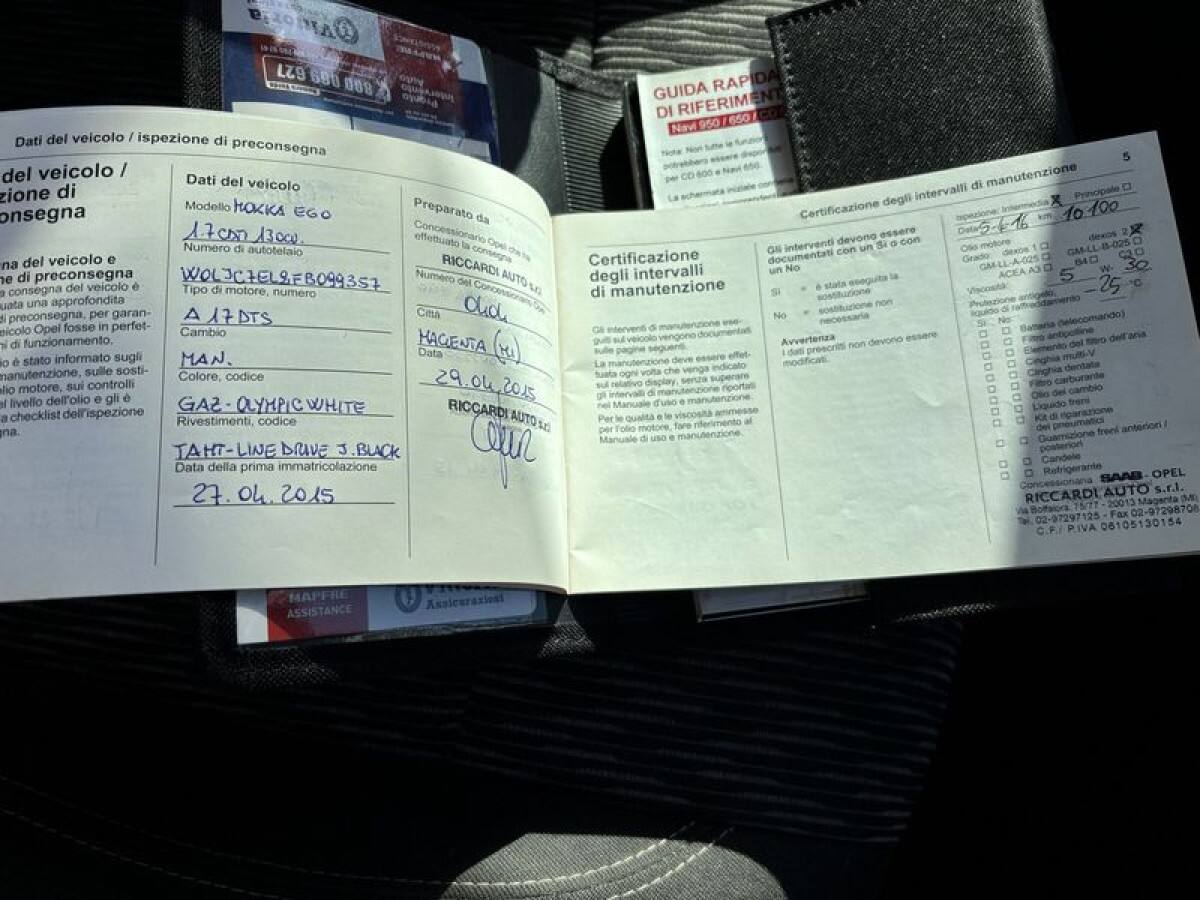 Vittoria
MAPFRE
ASSISTANCE
Pronto
Intervento
Auto
Numero Verde
800 069 627
GUIDA RAPIDA
DI RIFERIMENT
Navi 950 / 650 / CD
Nota: Non tutte le funzion
potrebbero essere disponibili
per CD 600 e Navi 650.
La schermata iniziale
Dati del veicolo / ispezione di preconsegna
del veicolo /
zione di
onsegna
na del veicolo e
ne di preconsegna
a consegna del veicolo è
uata una approfondita
di preconsegna, per garan-
eicolo Opel fosse in perfet-
ni di funzionamento.
o è stato informato sugli
manutenzione, sulle sosti-
olio motore, sui controlli
el livello dell'olio e gli è
a checklist dell'ispezione
gna.
Dati del veicolo
Modello MOKKA EGO
1.7 CDTI 130CV.
Numero di autotelaio
W0LJC7EL8FB099357
Tipo di motore, numero
A 17 DTS
Cambio
MAN.
Colore, codice
GAZ-OLYMPIC WHITE
Rivestimenti, codice
TAMT-LINE DRIVE J.BLACK
Data della prima immatricolazione
27.04.2015
Preparato da
Concessionario Opel che ha
effettuato la consegna
RICCARDI AUTO s.r.l
Numero del Concessionario Opel
0404
Città
MAGENTA (MI)
Data
29.04.2015
RICCARDI AUTO s.r.l
Certificazione degli intervalli di manutenzione
5
Certificazione
degli intervalli
di manutenzione
Gli interventi di manutenzione ese-
guiti sul veicolo vengono documentati
sulle pagine seguenti.
La manutenzione deve essere effet-
tuata ogni volta che venga indicato
sul relativo display, senza superare
gli intervalli di manutenzione riportati
nel Manuale d'uso e manutenzione.
Per le qualità e le viscosità ammesse
per l'olio motore, fare riferimento al
Manuale di uso e manutenzione.
Gli interventi devono essere
documentati con un Sì o con
un No
Sì = è stata eseguita la
sostituzione
No = sostituzione non
necessaria
Avvertenza
I dati prescritti non devono essere
modificati.
Ispezione: Intermedia X Principale
Data 5-4-16 km 10100
Olio motore
Grado: dexos 1 dexos 2 X
GM-LL-A-025 GM-LL-B-025
ACEA A3 B4 C3
Viscosità: 5 W- 30
Protezione antigelo,
liquido di raffreddamento -25 °C
Sì No
Batteria (telecomando)
Filtro antipolline
Elemento del filtro dell'aria
Cinghia multi-V
Cinghia dentata
Filtro carburante
Olio del cambio
Liquido freni
Kit di riparazione
dei pneumatici
Guarnizione freni anteriori /
posteriori
Candele
Refrigerante
Concessionaria SAAB - OPEL
RICCARDI AUTO s.r.l.
Via Boffalora, 75/77 - 20013 Magenta (MI)
Tel. 02-97297125 - Fax 02-97298708
C.F./ P.IVA 06105130154
MAPFRE
ASSISTANCE
Assicurazioni